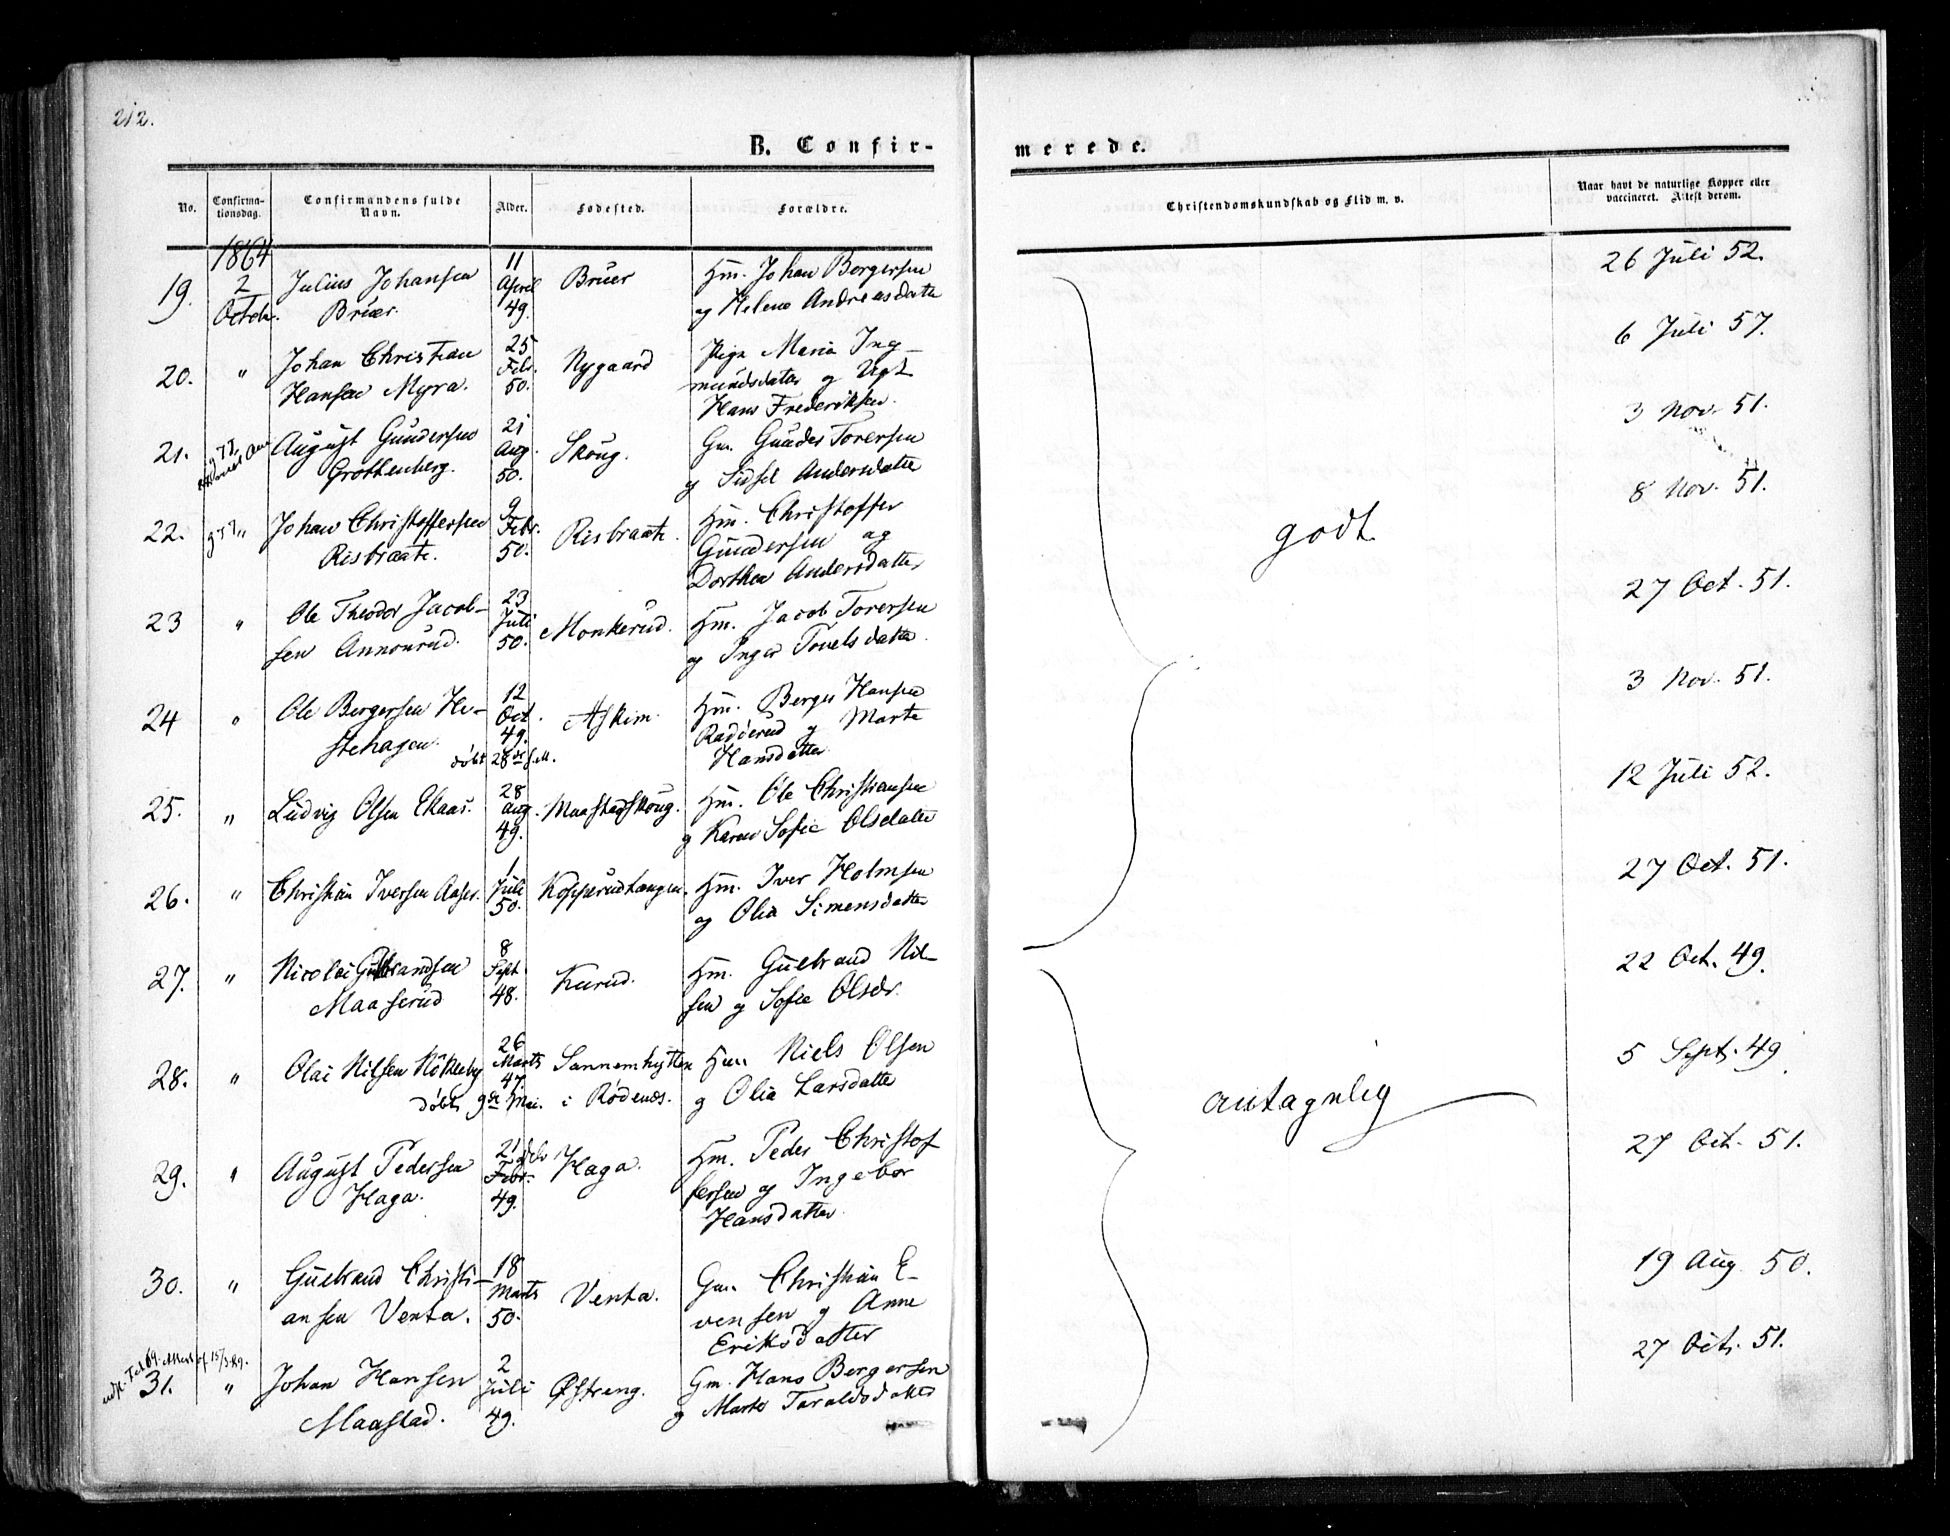 212.
B. Confir-
merede.
No.
Confirma-
tionsdag.
Confirmandens fulde
Navn.
Alder.
Fødested.
Forældre.
Christendomskundskab og Flid m. v.
Naar havt de naturlige Kopper eller
vaccineret. Attest derom.
1864
19. 2 Octob. Julius Johansen
Bruer.
11 April 49. Bruer
Hm. Johan Borgersen
og Helene Andreasdatte
26 Juli 52.
20. " Johan Christian
Hansen Myra.
25 Feb. 50. Nygaard
Pige Maria Ing-
mundsdatter og Ugk
Hans Frederiksen.
6 Juli 57.
21. August Gundersen
Grothenberg.
21 Aug. 50. Skoug.
Gm. Gunder Torersen
og Sidsel Andersdatte
3 Nov. 51.
22. " Johan Christoffersen
Risbraate.
9 Febr. 50. Risbraate.
Hm. Christoffer
Gundersen og
Dorthea Andersdatter
8 Nov. 51.
godt.
23 " Ole Theodor Jacob-
sen Annonrud.
23 Juli 50. Monkerud.
Hm. Jacob Torersen
og Inger Povelsdatte.
27 Oct. 51.
24 " Ole Bergersen He-
stehagen.
12 Oct. 49. Askim.
døbt 28de s.M.
Hm. Berger Hansen
Raddérud og Marte
Hansdatter
3 Nov. 51.
25. " Ludvig Olsen Ekaas.
28 Aug. 49. Maastadskoug.
Hm. Ole Christiansen
og Karen Sofie Olsdatter
12 Juli 52.
26. " Christian Iversen Aaser.
1 Juli 50. Kopperudtangen.
Hm. Iver Holmsen
og Olia Simensdatter
27 Oct. 51.
27. " Nicolai Gulbrandsen
Maaserud
8 Sept. 48. Kurud.
Hm. Gulbrand Nil-
sen og Sofie Olsdr.
22 Oct. 49.
28. " Olai Nilsen Kökkeby
døbt 9de Mai.
26 Marts 47. Sannemhytten
i Rödenæs.
Hm. Niels Olsen
og Olia Larsdatte
5 Sept. 49.
antagelig
29. " August Pedersen
Haga.
21 Febr. 49. Haga.
Hm. Peder Christof
fersen og Ingebor
Hansdatter
27 Oct. 51.
30. " Gulbrand Christi-
ansen Venta.
18 Marts 50. Venta.
Gm. Christian E-
vensen og Anne
Eriksdatter
19 Aug. 50.
31. " Johan Hansen
Maastad.
2 Juli 49. Østreng.
Gm. Hans Bergersen
og Marte Taraldsdatter
27 Oct. 51.